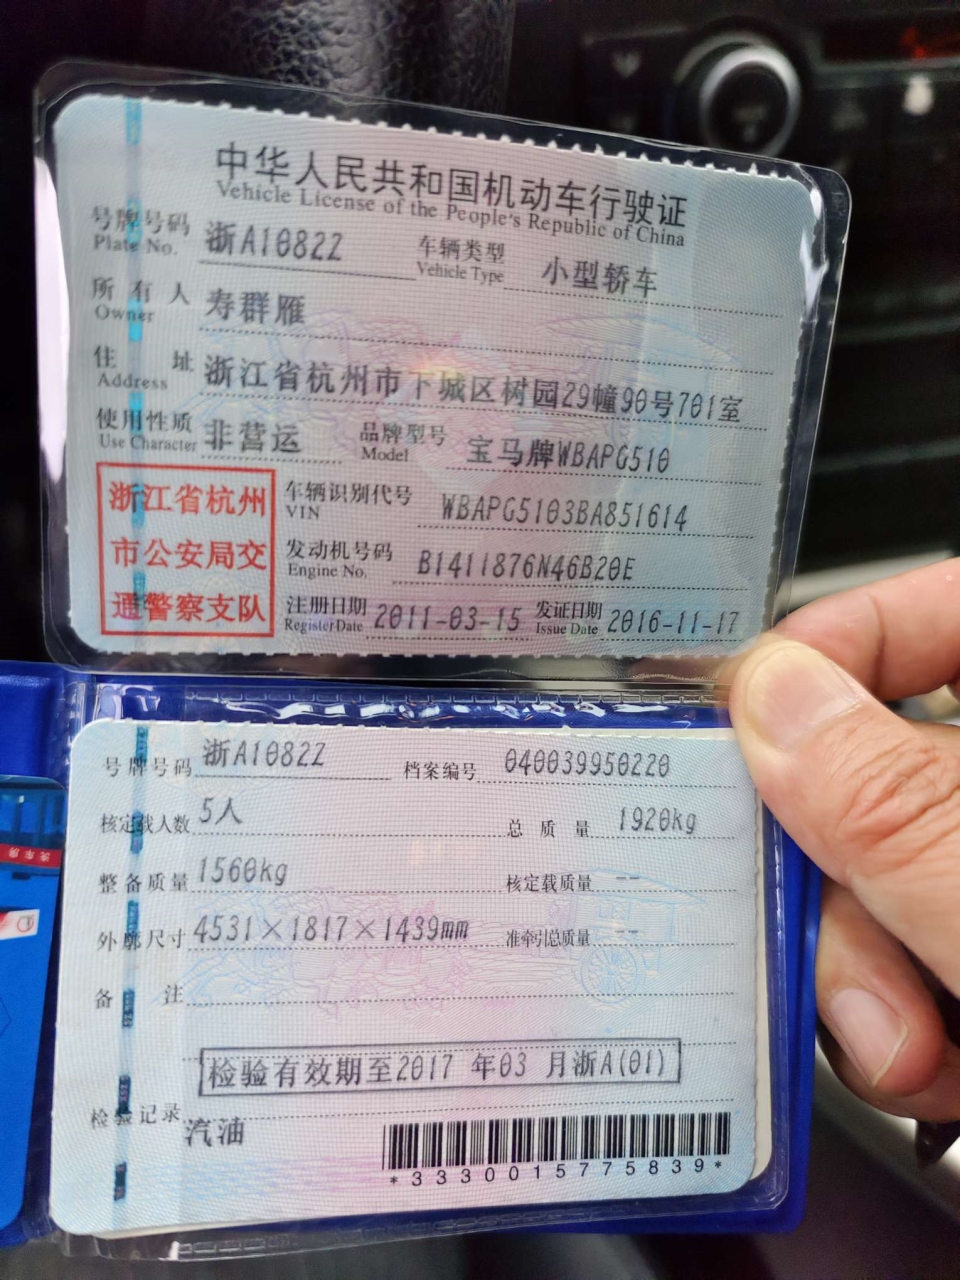 中华人民共和国机动车行驶证
Vehicle License of the People's Republic of China
号牌号码 浙A1082Z 车辆类型 小型轿车
Plate No. Vehicle Type
所有人 寿群雁
Owner
住址 浙江省杭州市下城区树园29幢90号701室
Address
使用性质 非营运 品牌型号 宝马牌WBAPG510
Use Character Model
浙江省杭州
市公安局交
通警察支队
车辆识别代号 WBAPG5103BA851614
VIN
发动机号码 B1411876N46B20E
Engine No.
注册日期 2011-03-15 发证日期 2016-11-17
Register Date Issue Date
号牌号码 浙A1082Z 档案编号 040039950220
核定载人数 5人 总质量 1920kg
整备质量 1560kg 核定载质量 --
外廓尺寸 4531×1817×1439mm 准牵引总质量 --
备注
检验有效期至2017 年03 月浙A(01)
检验记录
汽油
*3330015775839*
洗车房